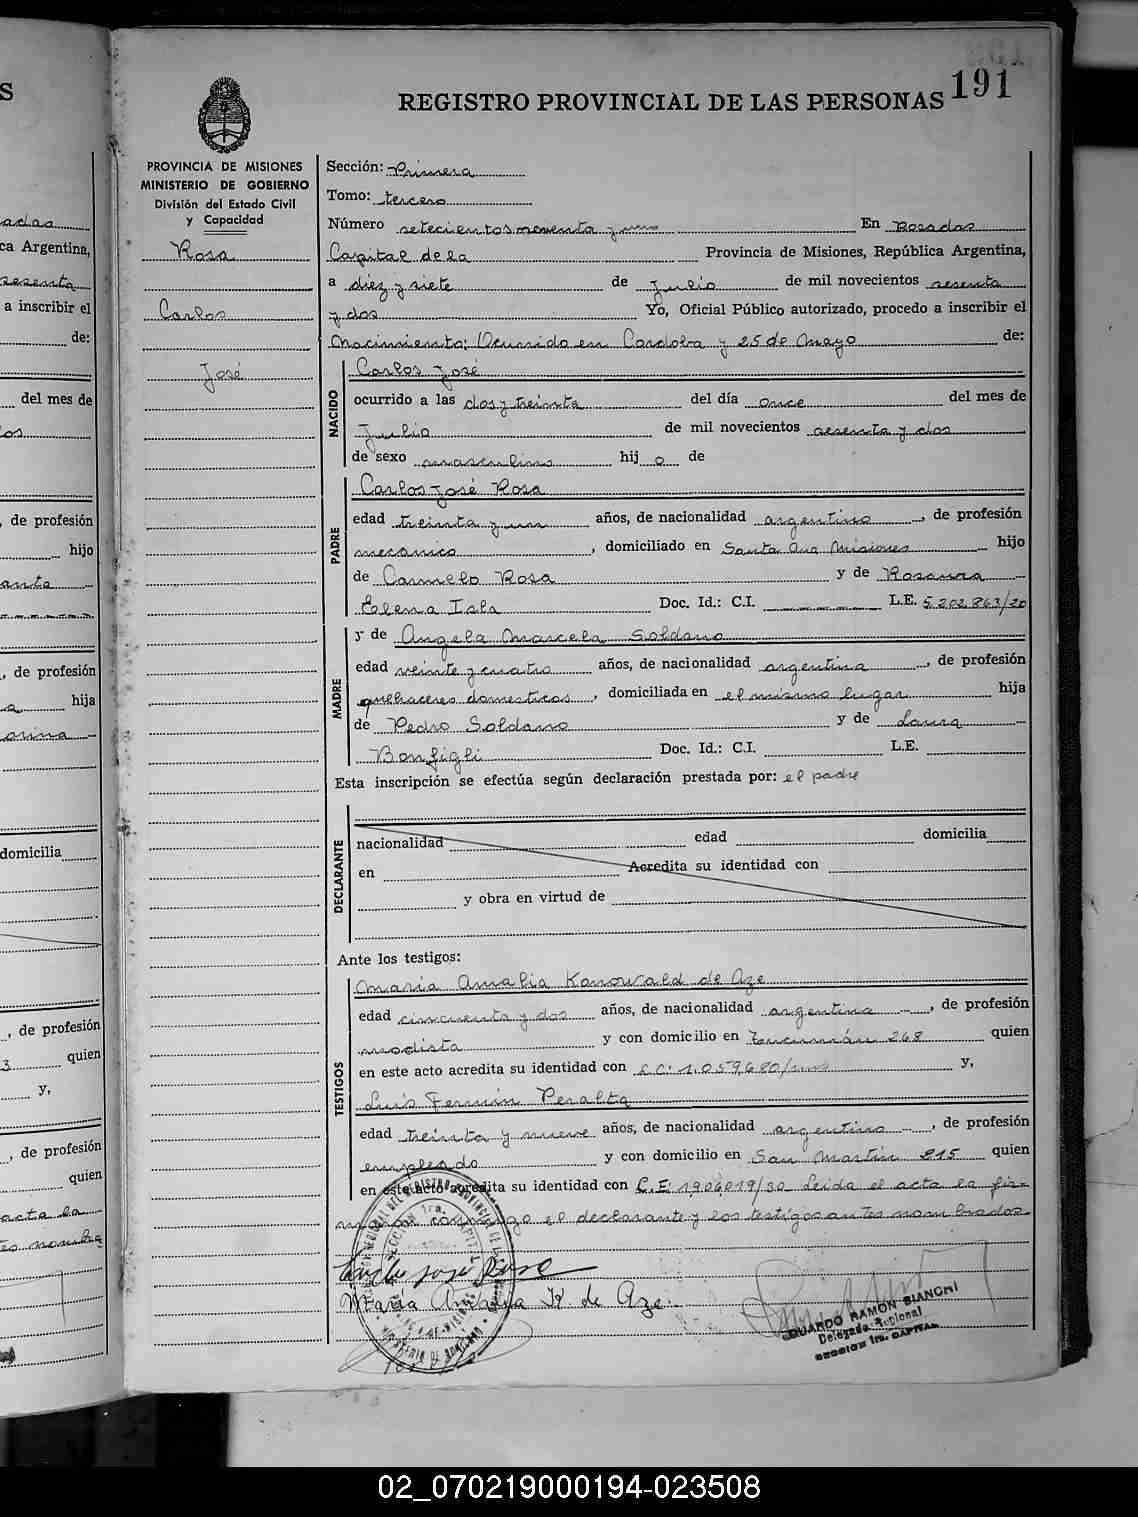 191
REGISTRO PROVINCIAL DE LAS PERSONAS
PROVINCIA DE MISIONES
MINISTERIO DE GOBIERNO
División del Estado Civil
y Capacidad
Rosa
Carlos
José
Sección: Primera
Tomo: tercero
Número setecientos noventa y uno En Posadas
Capital de la Provincia de Misiones, República Argentina,
a diez y siete de Julio de mil novecientos sesenta
y dos Yo, Oficial Público autorizado, procedo a inscribir el
Nacimiento: Ocurrido en Cordoba y 25 de Mayo de:
NACIDO
Carlos José
ocurrido a las dos y treinta del día once del mes de
Julio de mil novecientos sesenta y dos
de sexo masculino hij o de
PADRE
Carlos José Rosa
edad treinta y un años, de nacionalidad argentino, de profesión
mecanico, domiciliado en Santa Ana Misiones hijo
de Carmelo Rosa y de Rosaura
Elena Isla Doc. Id.: C.I. L.E. 5.202.863/20
MADRE
y de Angela Marcela Soldano
edad veinte y cuatro años, de nacionalidad argentina, de profesión
quehaceres domesticos, domiciliada en el mismo lugar hija
de Pedro Soldano y de Laura
Bonfigli Doc. Id.: C.I. L.E.
Esta inscripción se efectúa según declaración prestada por: el padre
DECLARANTE
nacionalidad edad domicilia
en Acredita su identidad con
y obra en virtud de
Ante los testigos:
TESTIGOS
Maria Amalia Konowald de Aze
edad cincuenta y dos años, de nacionalidad argentina, de profesión
modista y con domicilio en Tucumán 268 quien
en este acto acredita su identidad con L.C: 1.059.680/uno y,
Luis Fermin Peralta
edad treinta y nueve años, de nacionalidad argentino, de profesión
empleado y con domicilio en San Martin 815 quien
en este acto acredita su identidad con C.I. 1904019/30 Leida el acta la fir-
man conmigo el declarante y los testigos antes nombrados.
Carlos José Rosa
María Amalia K de Aze
EDUARDO RAMON BIANCHI
Delegado Regional
SECCION 1ra. CAPITAL
02_070219000194-023508